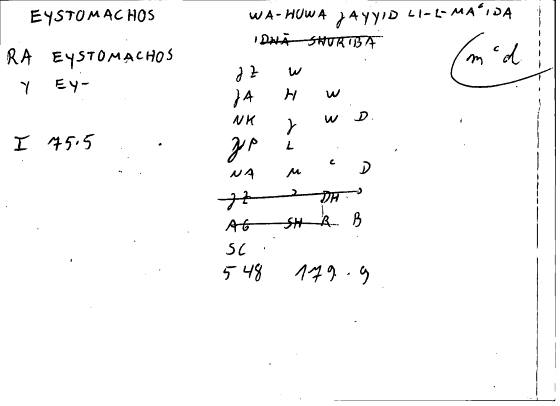 EYSTOMACHOS
RA EYSTOMACHOS
Y EY-
I 75.5
WA-HUWA JAYYID LI-L-MAʿIDA
IDHĀ SHURIBA
mʿd
JZ W
JA H W
NK J W D
JP L
NA M ʿ D
JZ ʾ DH ʾ
AG SH R B
SC
548 179.9